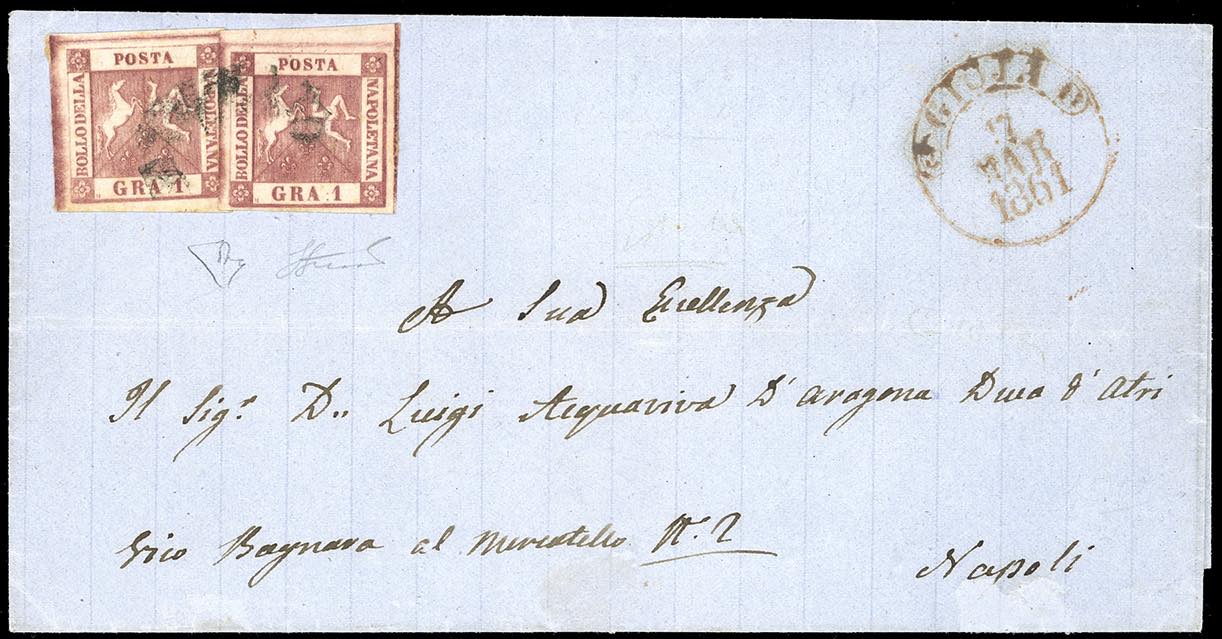 POSTA
BOLLO DELLA
NAPOLETANA
GRA 1
POSTA
BOLLO DELLA
NAPOLETANA
GRA 1
7
MAR
1861
A Sua Eccellenza
Il Sig.r D.n Luigi Acquaviva D'aragona Duca d'Atri
Vico Bagnara al Mercatello N.º 2
Napoli